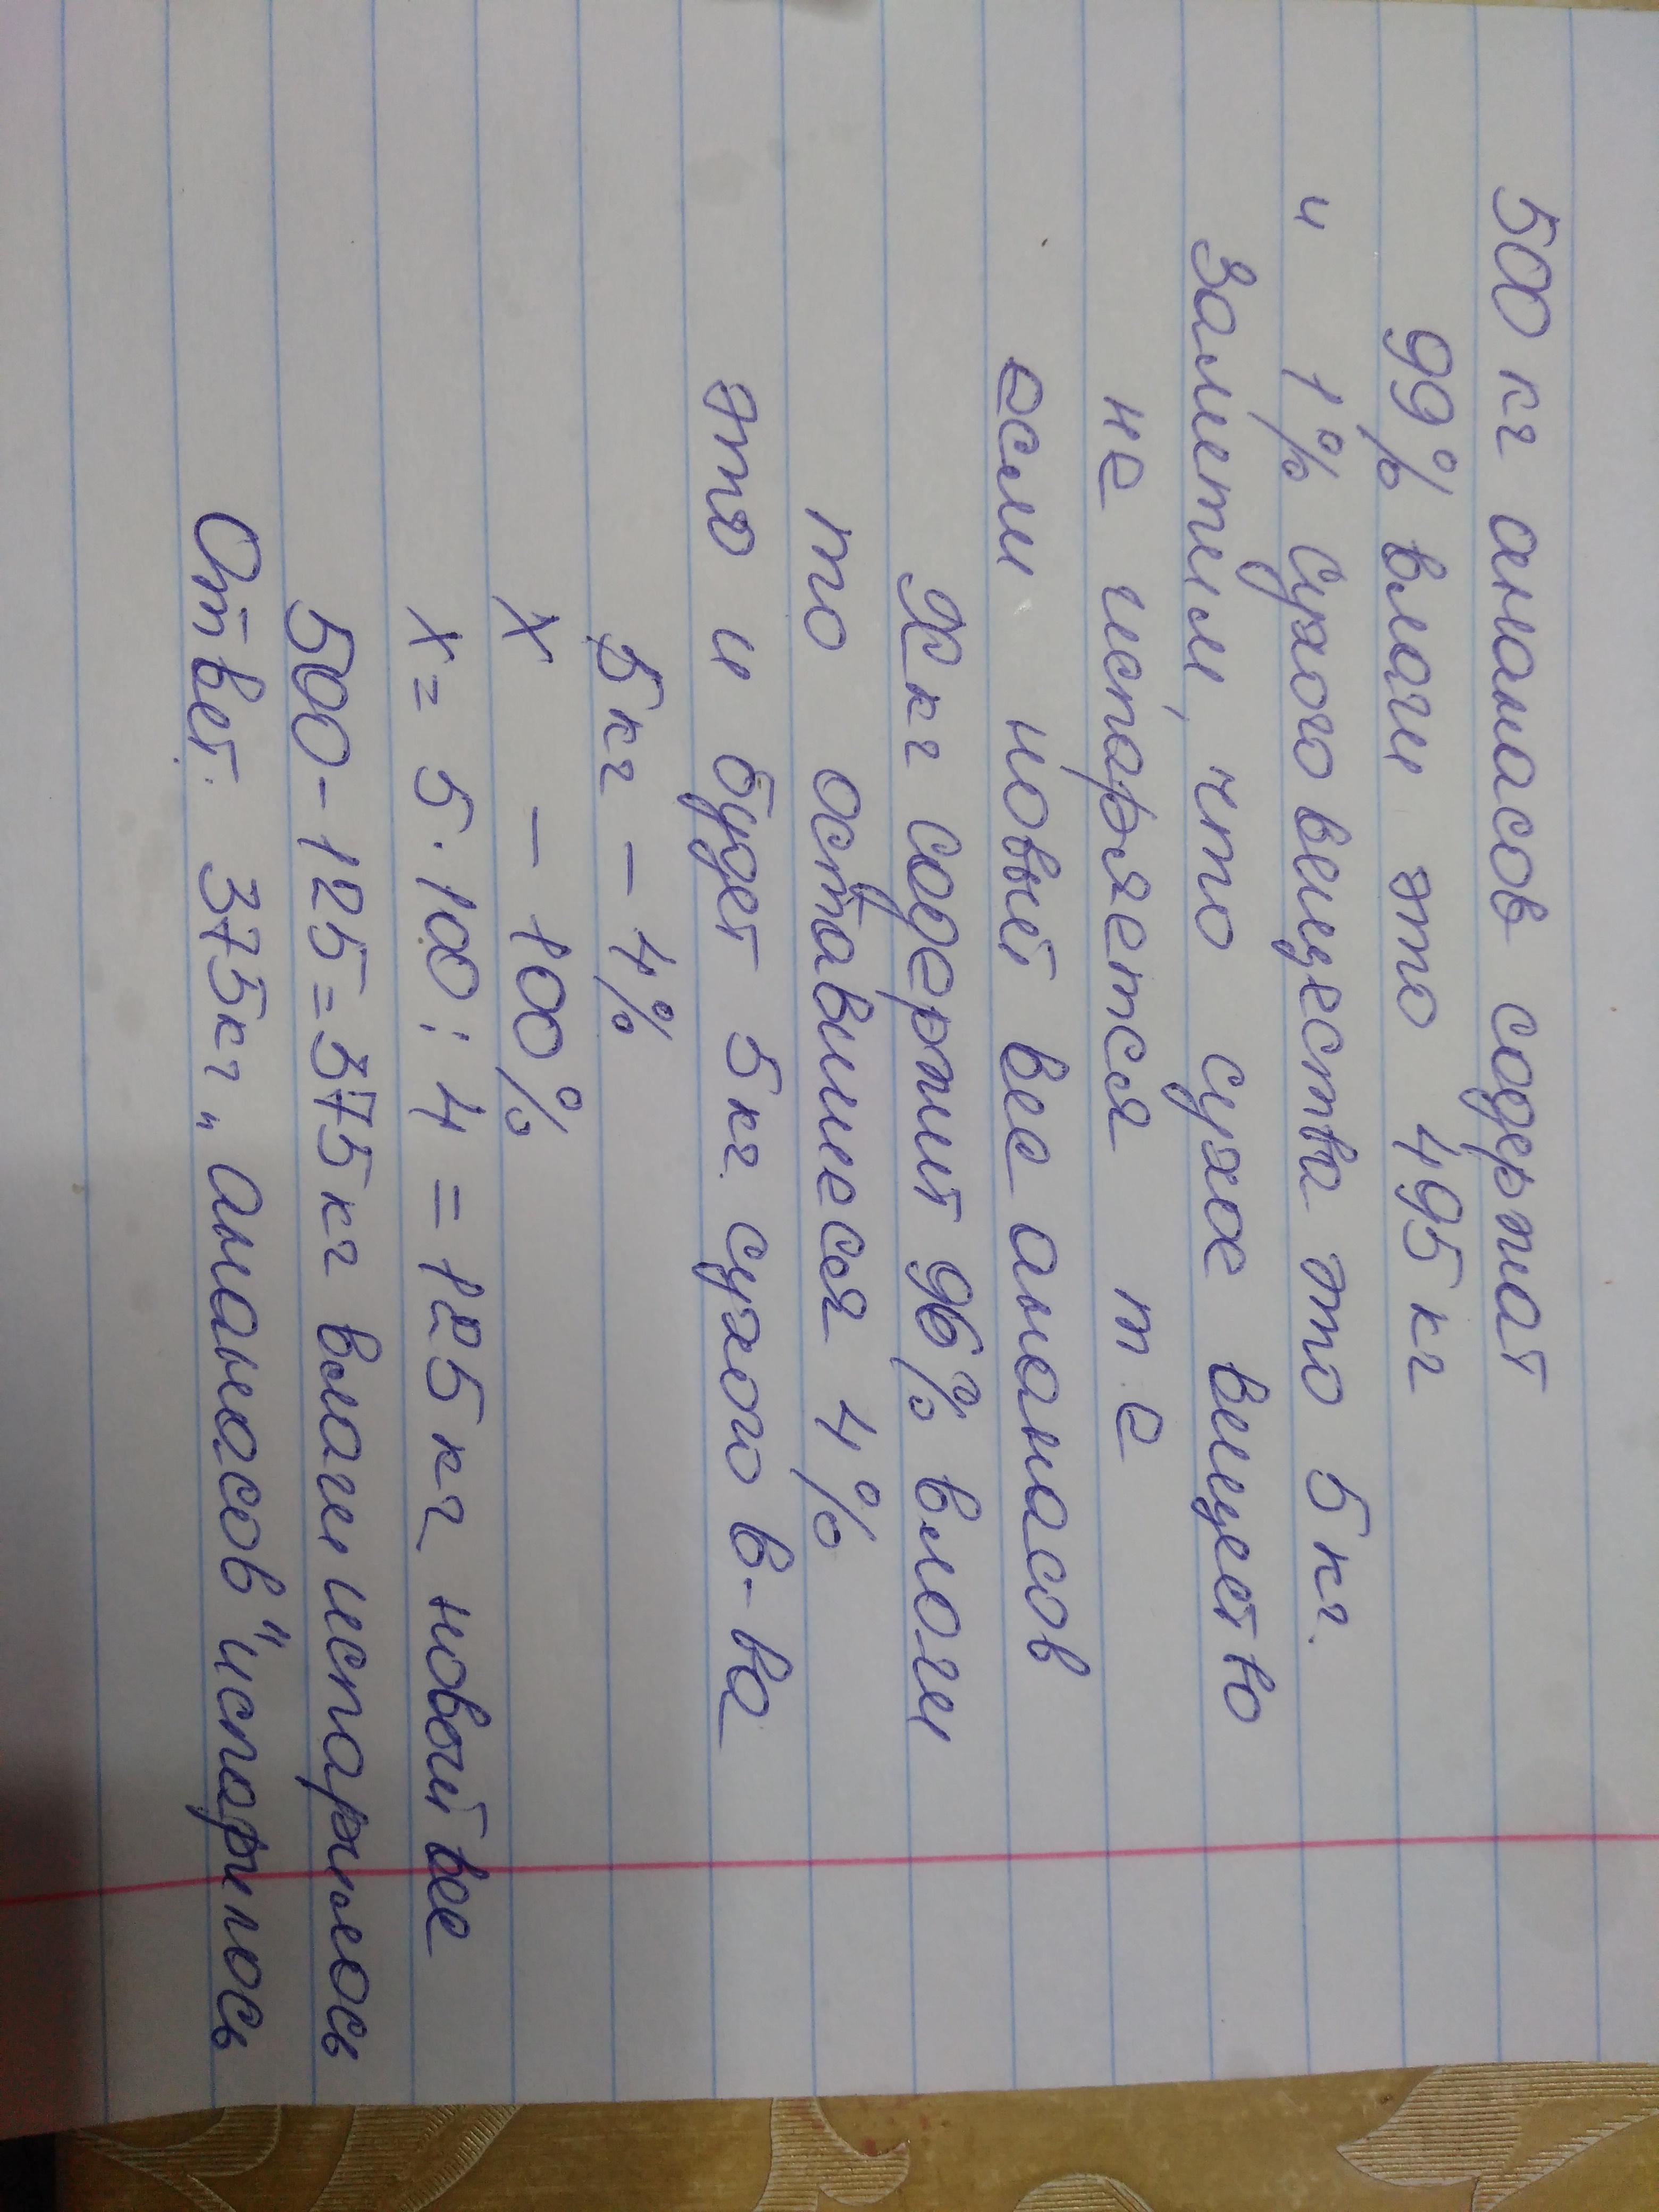 500 кг ананасов содержат
99% влаги это 495 кг
и 1% сухого вещества это 5 кг.
Заметим, что сухое вещество
не испаряется т.е
если новый вес ананасов
X кг содержит 96% влаги
то оставшиеся 4%
это и будет 5 кг сухого в-ва
5 кг - 4%
X - 100%
X = 5 · 100 : 4 = 125 кг новый вес
500 - 125 = 375 кг влаги испарилось
Ответ: 375 кг „ананасов" испарилось